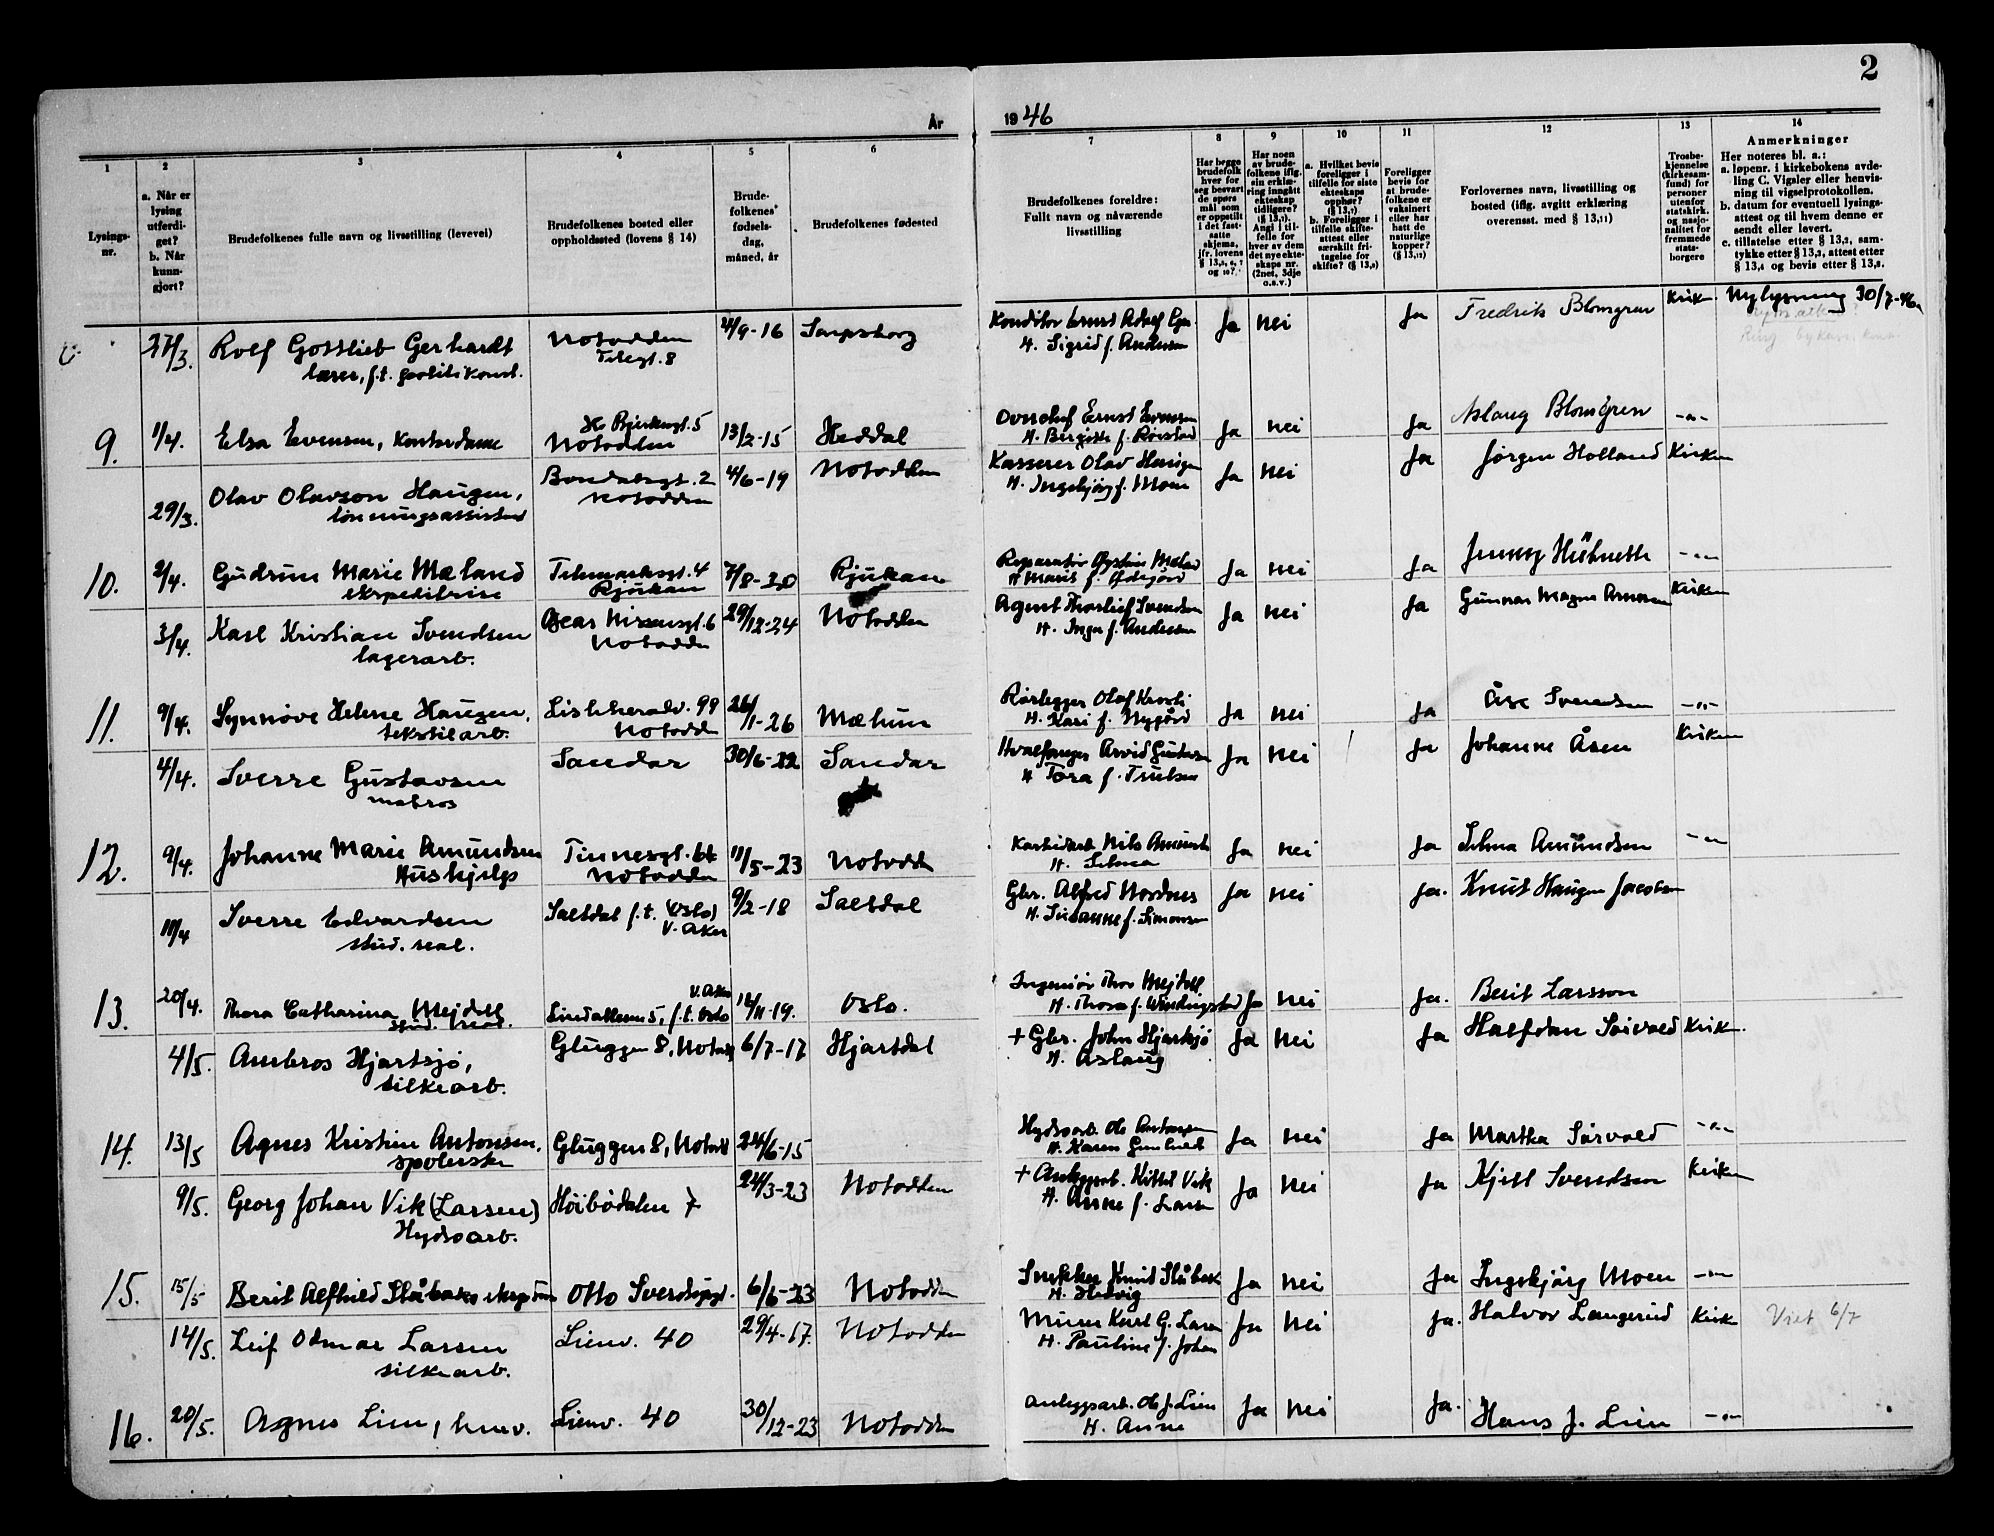 2
År 1946
1 2 3 4 5 6 7 8 9 10 11 12 13 14
Lysings-
nr.
a. Når er
lysing
utferdi-
get?
b. Når
kunn-
gjort?
Brudefolkenes fulle navn og livsstilling (levevei)
Brudefolkenes bosted eller
oppholdssted (lovens § 14)
Brude-
folkenes
fødsels-
dag,
måned, år
Brudefolkenes fødested
Brudefolkenes foreldre:
Fullt navn og nåværende
livsstilling
Har begge
brudefolk
hver for
seg besvart
de spørs-
mål som
er oppstilt
i det fast-
satte
skjema,
jfr. lovens
Har noen
av brude-
folkene iflg.
sin erklæ-
ring inngått
ekteskap
tidligere?
Angi i til-
felle for
hver av dem
det nye ekte-
skaps nr.
(2net, 3dje
o.s.v.)
a. Hvilket bevis
foreligger i
tilfelle for siste
ekteskaps
opphør?
b. Foreligger i
tilfelle skifte-
attest eller
særskilt fri-
tagelse for
Foreligger
bevis for
at brude-
folkene er
vaksinert
eller har
hatt de
naturlige
kopper?
Forlovernes navn, livsstilling og
bosted (iflg. avgitt erklæring
overensst. med § 13,11)
Trosbe-
kjennelse
(kirkesam-
fund) for
personer
utenfor
statskirk.
og nasjo-
nalitet for
fremmede
stats-
borgere
Anmerkninger
Her noteres bl. a.:
a. løpenr. i kirkebokens avde-
ling C. Vigsler eller henvis-
ning til vigselprotokollen.
b. datum for eventuell lysings-
attest og til hvem denne er
sendt eller levert.
c. tillatelse etter § 13,2, sam-
tykke etter § 13,3, attest etter
§ 13,4 og bevis etter § 13,8.
27/3. Rolf Gottlieb Gerhardt Notodden 4/9-16 Sarpsborg Konditor Ernst Adolf Ja nei Ja Fredrik Blomgren Nylysning 30/7-46
lærer, f.t. Telegt. 8 H. Sigrid f. Andersen
9. 1/4. Elsa Evensen, Kontordame Notodden 13/2-15 Heddal Ernst Evensen Ja nei Ja Aslaug Blomgren -"-
29/3. Olav Olavson Haugen, Notodden 4/6-19 Notodden Kasserer Olav Haugen Ja nei Ja Jørgen Holland Kirken
H. Ingebjørg f. Moen
10. 2/4. Gudrun Marie Mæland Telemarksgt. 4 7/8-20 Rjukan Ja nei Ja -"-
ekspeditrise Rjukan H Marit f.
3/4. Karl Kristian Svendsen 29/12-24 Notodden Agent Thorleif Svendsen Ja nei Ja Gunnar Magne Kirken
lagerarb. Notodden H. Inga f. Andersen
11. 9/4. Synnøve Helene Haugen, 26/1-26 Mælum Rørlegger Olaf Ja nei Ja Åse Svendsen -"-
tekstilarb. Notodden H. Kari f. Nygård
4/4. Sverre Gustavsen Sandar 30/6-22 Sandar Hvalfanger Arvid Gustavsen Ja nei Ja Johanne Åsen Kirken
matros H Tora f. Trulsen
12. 9/4. Johanne Marie Amundsen 11/5-23 Notodden Nils Amunds Ja nei Ja Selma Amundsen -"-
Hushjelp Notodden H. Selma
11/4 Sverre Edvardsen Saltdal f.t. (Oslo) 9/2-18 Saltdal Gbr. Alfred Nordnes Ja nei Ja. Knut Haugen Jacobsen
stud. real. V. Aker H. Susanne f. Simonsen
13. 20/4. Thora Catharina Mejdell 5, f.t. Oslo V. Aker 16/11-19. Oslo. Ingeniør Thor Mejdell Ja nei Ja. Berit Larsson
stud. real. H. Thora f.
4/5. Ambros Hjartsjø, Gluggen 8, Notodd 6/7-17 Hjartdal + Gbr. John Hjartsjø Ja nei Ja Halfdan Sørvald Kirk.
silkearb. H. Aslaug
14. 13/5 Agnes Kristine Antonsen. Gluggen 8, Notodd 24/6-15 Hydroarb. Ole Antonsen Ja nei Ja Martha Sørvald -"-
spolerske H. Karen Gunhild
9/5. Georg Johan Vik (Larsen) Høibødalen 7 24/3-23 Notodden + Anleggsarb. Kittil Vik Ja nei Ja Kjell Svendsen Kirken
Hydroarb. H. Anne f. Larsen
15. 15/5 Berit Alfhild Slåbakk Otto Sverdrupsgt. 6/6-23 Notodden Snekker Knut Slåbak Ja nei Ja Ingebjørg Moen -"-
H. Hedvig
14/5. Leif Odmar Larsen Lienv. 40 29/4-17. Notodden Murer Karl G. Larsen Ja nei Ja. Halvor Langerud Kirk Viet 6/7
silkearb. H. Pauline f. Johan
16. 20/5. Agnes Lien, husv. Lienv. 40 30/12-23 Notodden Anleggsarb. Ole J. Lien Ja nei Ja. Hans J. Lien -"-
H. Anne